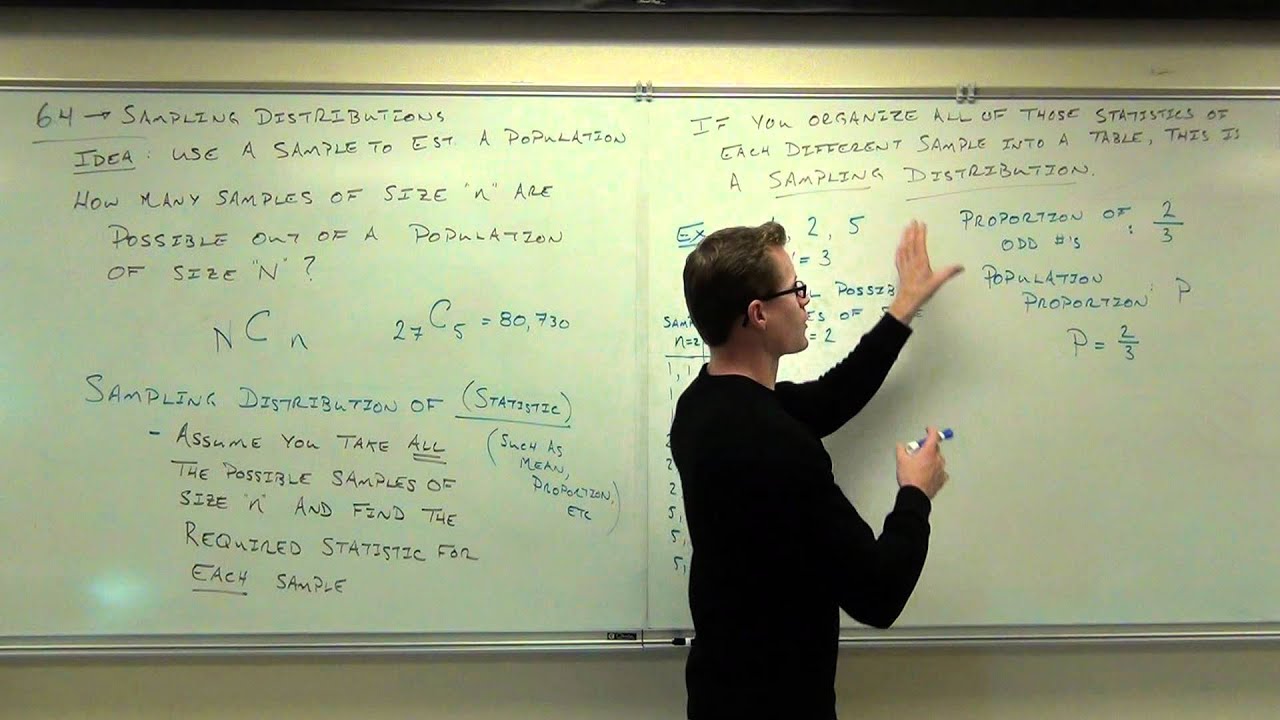 6.4 → SAMPLING DISTRIBUTIONS
IDEA: USE A SAMPLE TO EST. A POPULATION
HOW MANY SAMPLES OF SIZE "n" ARE
POSSIBLE OUT OF A POPULATION
OF SIZE "N"?
NCn
27C5 = 80,730
SAMPLING DISTRIBUTION OF (STATISTIC)
- ASSUME YOU TAKE ALL
THE POSSIBLE SAMPLES OF
SIZE "n" AND FIND THE
REQUIRED STATISTIC FOR
EACH SAMPLE
(SUCH AS
MEAN,
PROPORTION,
ETC)
IF YOU ORGANIZE ALL OF THOSE STATISTICS OF
EACH DIFFERENT SAMPLE INTO A TABLE, THIS IS
A SAMPLING DISTRIBUTION.
EX
, 2, 5
= 3
POSSIB
OF
= 2
SAMP
n=2
1, 1
1
1
2
2
2,
5,
5,
5,
PROPORTION OF : 2/3
ODD #'S
POPULATION
PROPORTION: P
P = 2/3